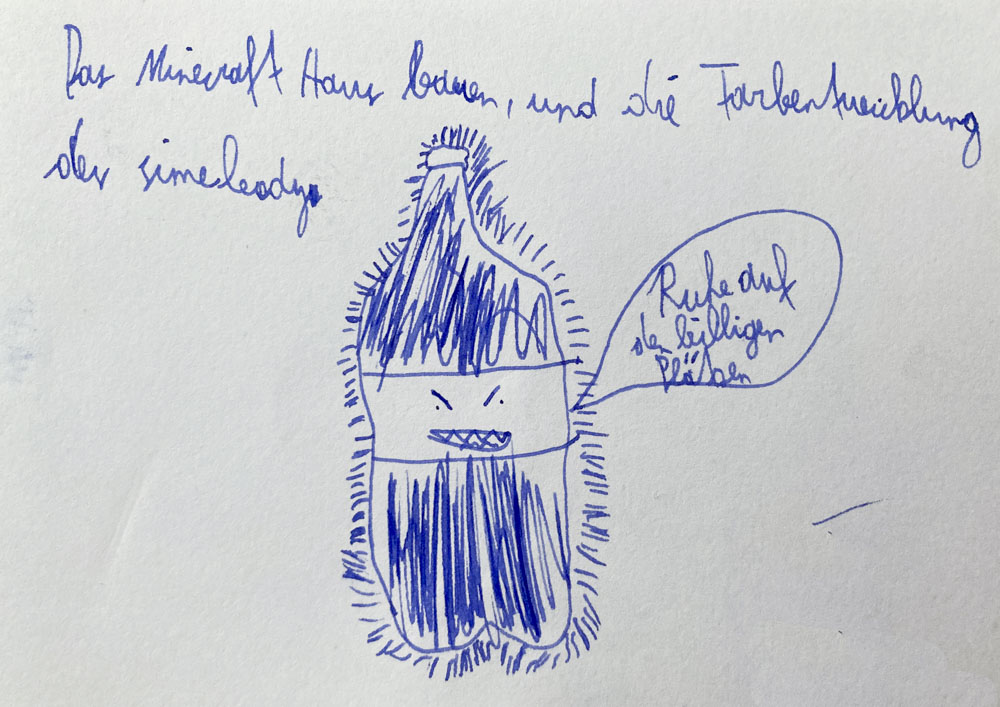 Das Minecraft Haus bauen, und die Farbentwicklung
der simeleady.
Ruhe auf
den billigen
Plätzen